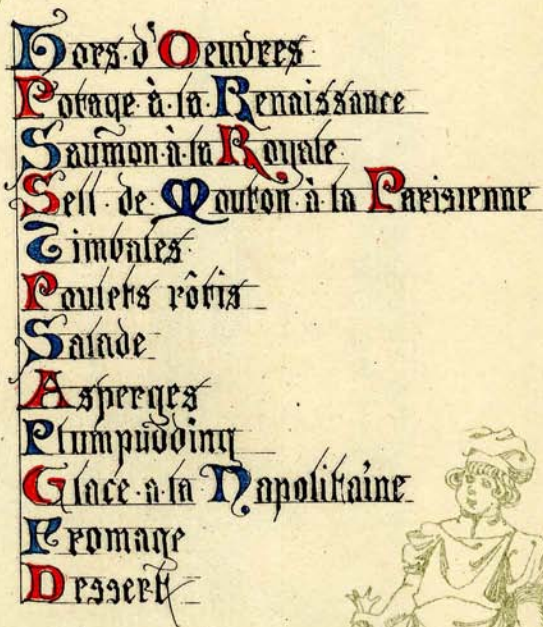 Hors d'Oeuvres
Potage à la Renaissance
Saumon à la Royale
Sell de Mouton à la Parisienne
Timbales
Poulets rôtis
Salade
Asperges
Plumpudding
Glace a la Napolitaine
Fromage
Dessert